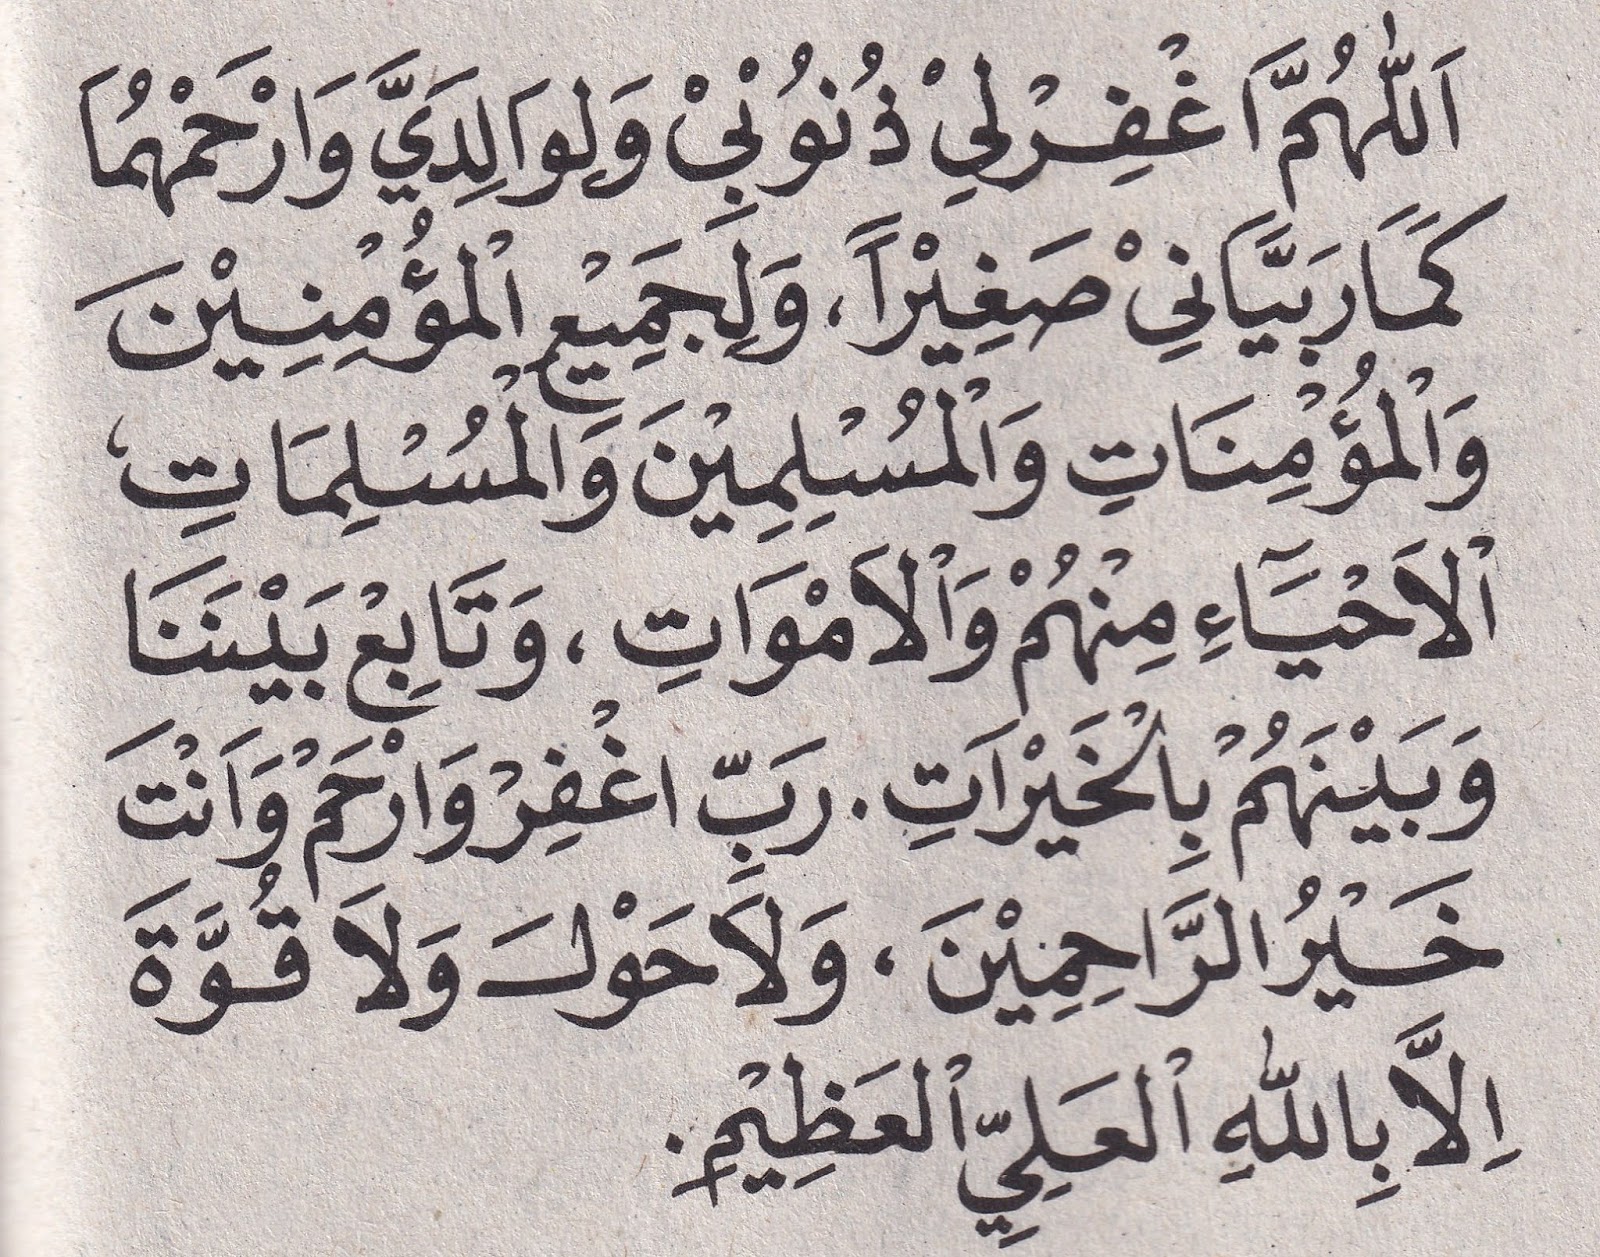 اَللّٰهُمَّ اَغْفِرْلِيْ ذُنُوْبِيْ وَلِوَالِدَيَّ وَارْحَمْهُمَا
كَمَا رَبَّيَانِيْ صَغِيْرًا، وَلِجَمِيْعِ الْمُؤْمِنِيْنَ
وَالْمُؤْمِنَاتِ وَالْمُسْلِمِيْنَ وَالْمُسْلِمَاتِ،
الْاَحْيَآءِ مِنْهُمْ وَالْاَمْوَاتِ، وَتَابِعْ بَيْنَنَا
وَبَيْنَهُمْ بِالْخَيْرَاتِ. رَبِّ اغْفِرْ وَارْحَمْ وَاَنْتَ
خَيْرُ الرَّاحِمِيْنَ، وَلاَ حَوْلَ وَلاَ قُوَّةَ
اِلاَّ بِاللّٰهِ الْعَلِيِّ الْعَظِيْمِ.